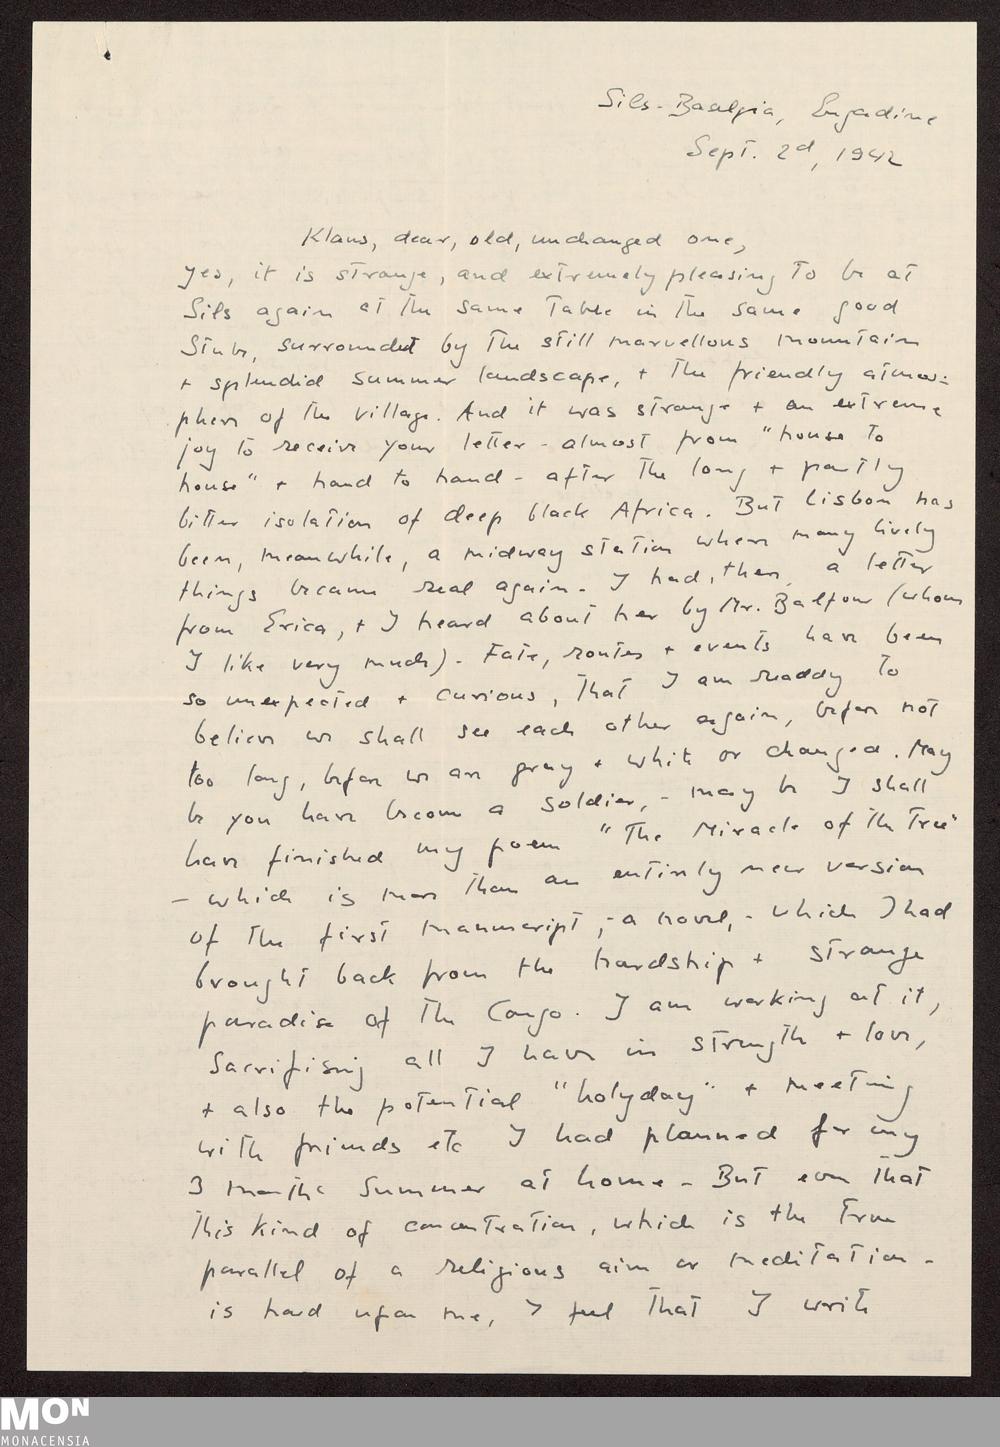 Sils-Baselgia, Engadine
Sept. 2d, 1942
Klaus, dear, old, unchanged one,
yes, it is strange, and extremely pleasing to be at
Sils again at the same table in the same good
Stube, surroundet by the still marvellous mountain
+ splendid summer landscape, + the friendly atmos=
phere of the village. And it was strange + an extreme
joy to receive your letter - almost from "house to
house" + hand to hand - after the long + partly
bitter isolation of deep black Africa. But Lisbon has
been, meanwhile, a midway station where many lively
things became real again. I had, then, a letter
from Erica, + I heard about her by Mr. Balfour (whom
I like very much). Fate, routes + events have been
so unexpected + curious, that I am readdy to
believe we shall see each other again, before not
too long, before we are grey + white or changed. May
be you have become a soldier, - may be I shall
have finished my poem "The Miracle of the Tree"
- which is more than an entirely new version
of the first manuscript, - a novel, - which I had
brought back from the hardship + strange
paradise of the Congo. I am working at it,
sacrifising all I have in strength + love,
+ also the potential "holyday" + meeting
with friends etc I had planned for my
3 months summer at home. But even that
this kind of concentration, which is the true
parallel of a religious aim or meditation -
is hard upon me, I feel that I write
MON
MONACENSIA